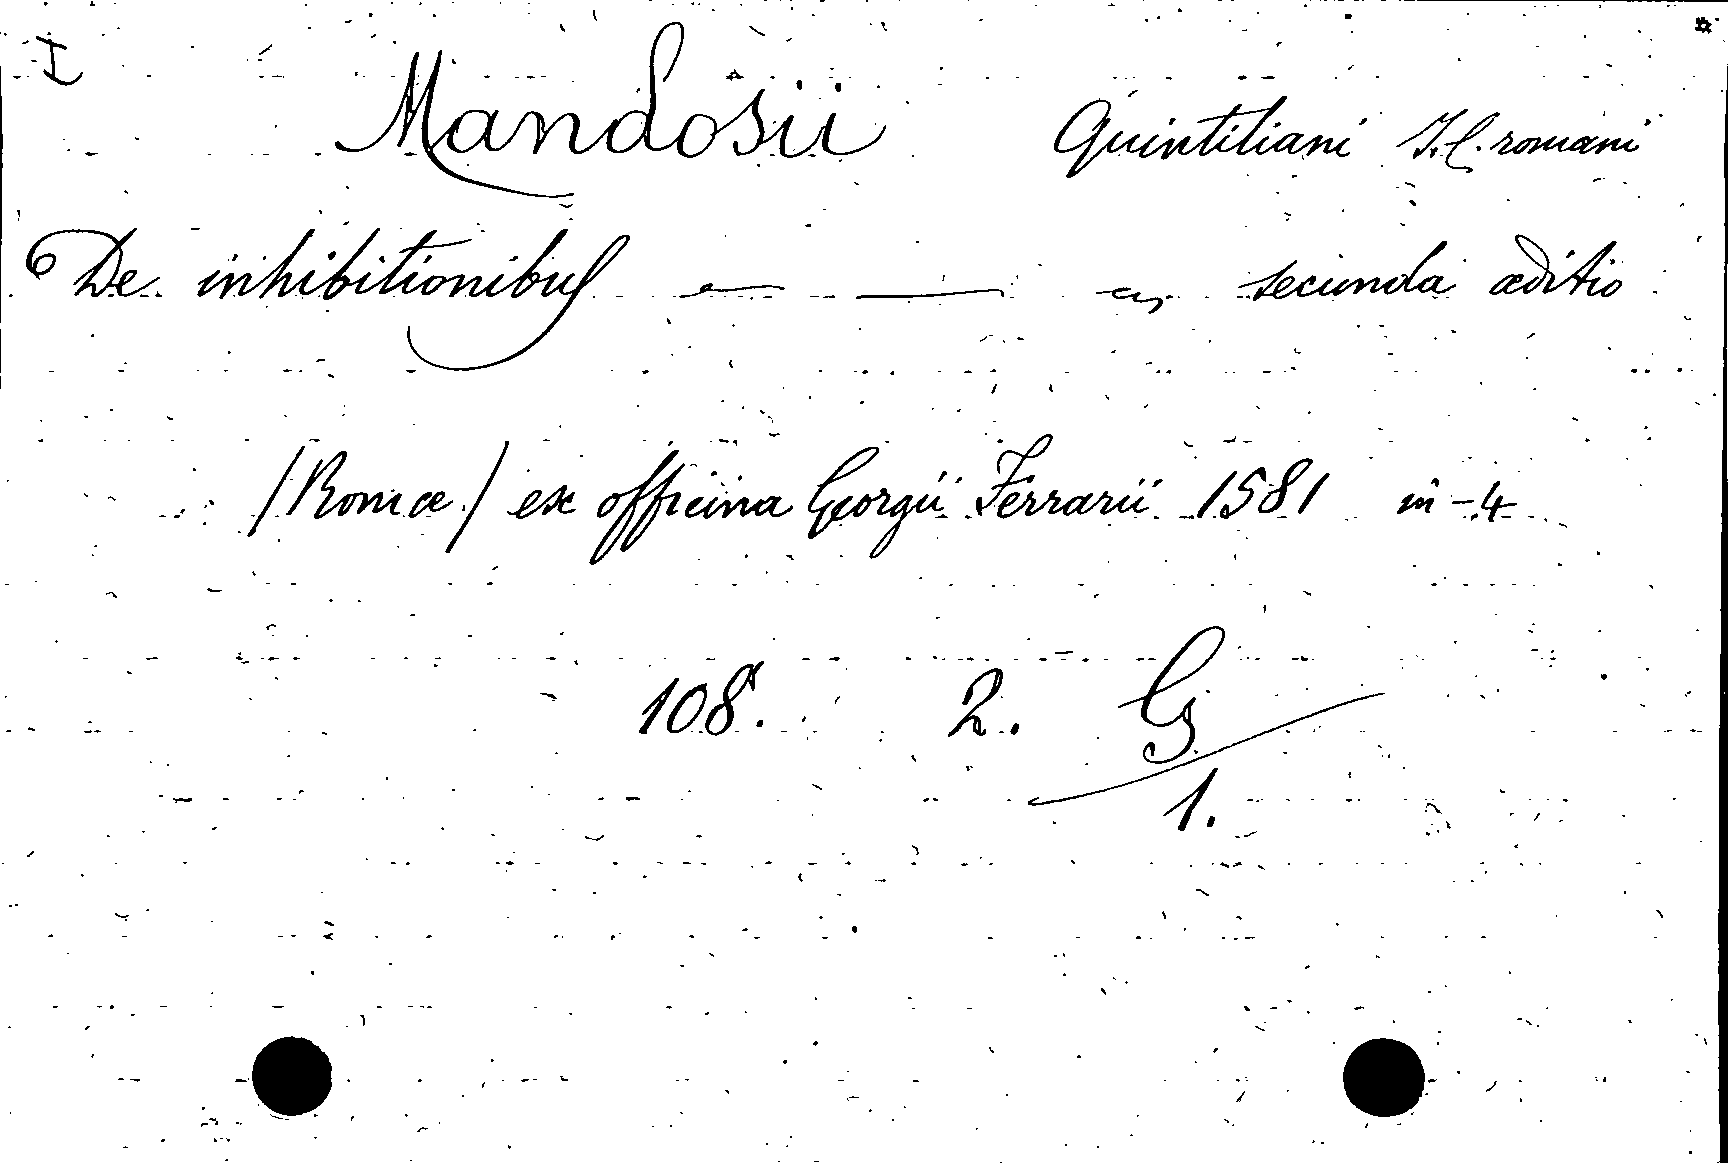 I
Mandosii Quintiliani J.C. romani
De inhibitionibus — — secunda æditio
/Romæ/ ex officina Georgii Ferrarii 1581 in-4
108. 2. G
1.